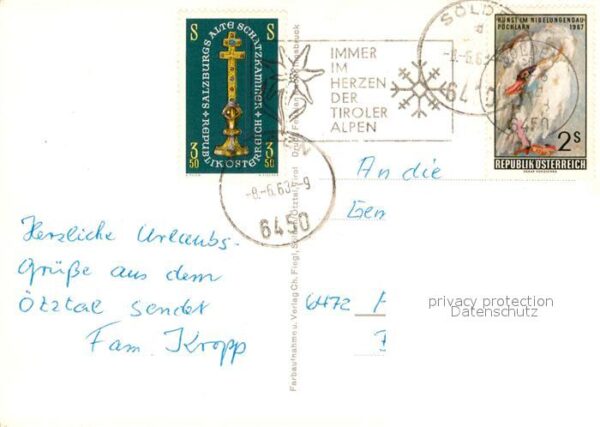 S S
SALZBURGS ALTE SCHATZKAMMER
REPUBLIK ÖSTERREICH
3 50 3 50
IMMER
IM
HERZEN
DER
TIROLER
ALPEN
-8.-6.63 -9
6450
SÖLD
-8.-6.6
6450
KUNST IM NIBELUNGENGAU
PÖCHLARN 1967
2 S
REPUBLIK ÖSTERREICH
An die
Gem
6472
Herzliche Urlaubs-
Grüße aus dem
Ötztal sendet
Fam. Kropp
Farbaufnahme u. Verlag Ch. Fiegl, Sölden, Ötztal, Tirol
privacy protection
Datenschutz